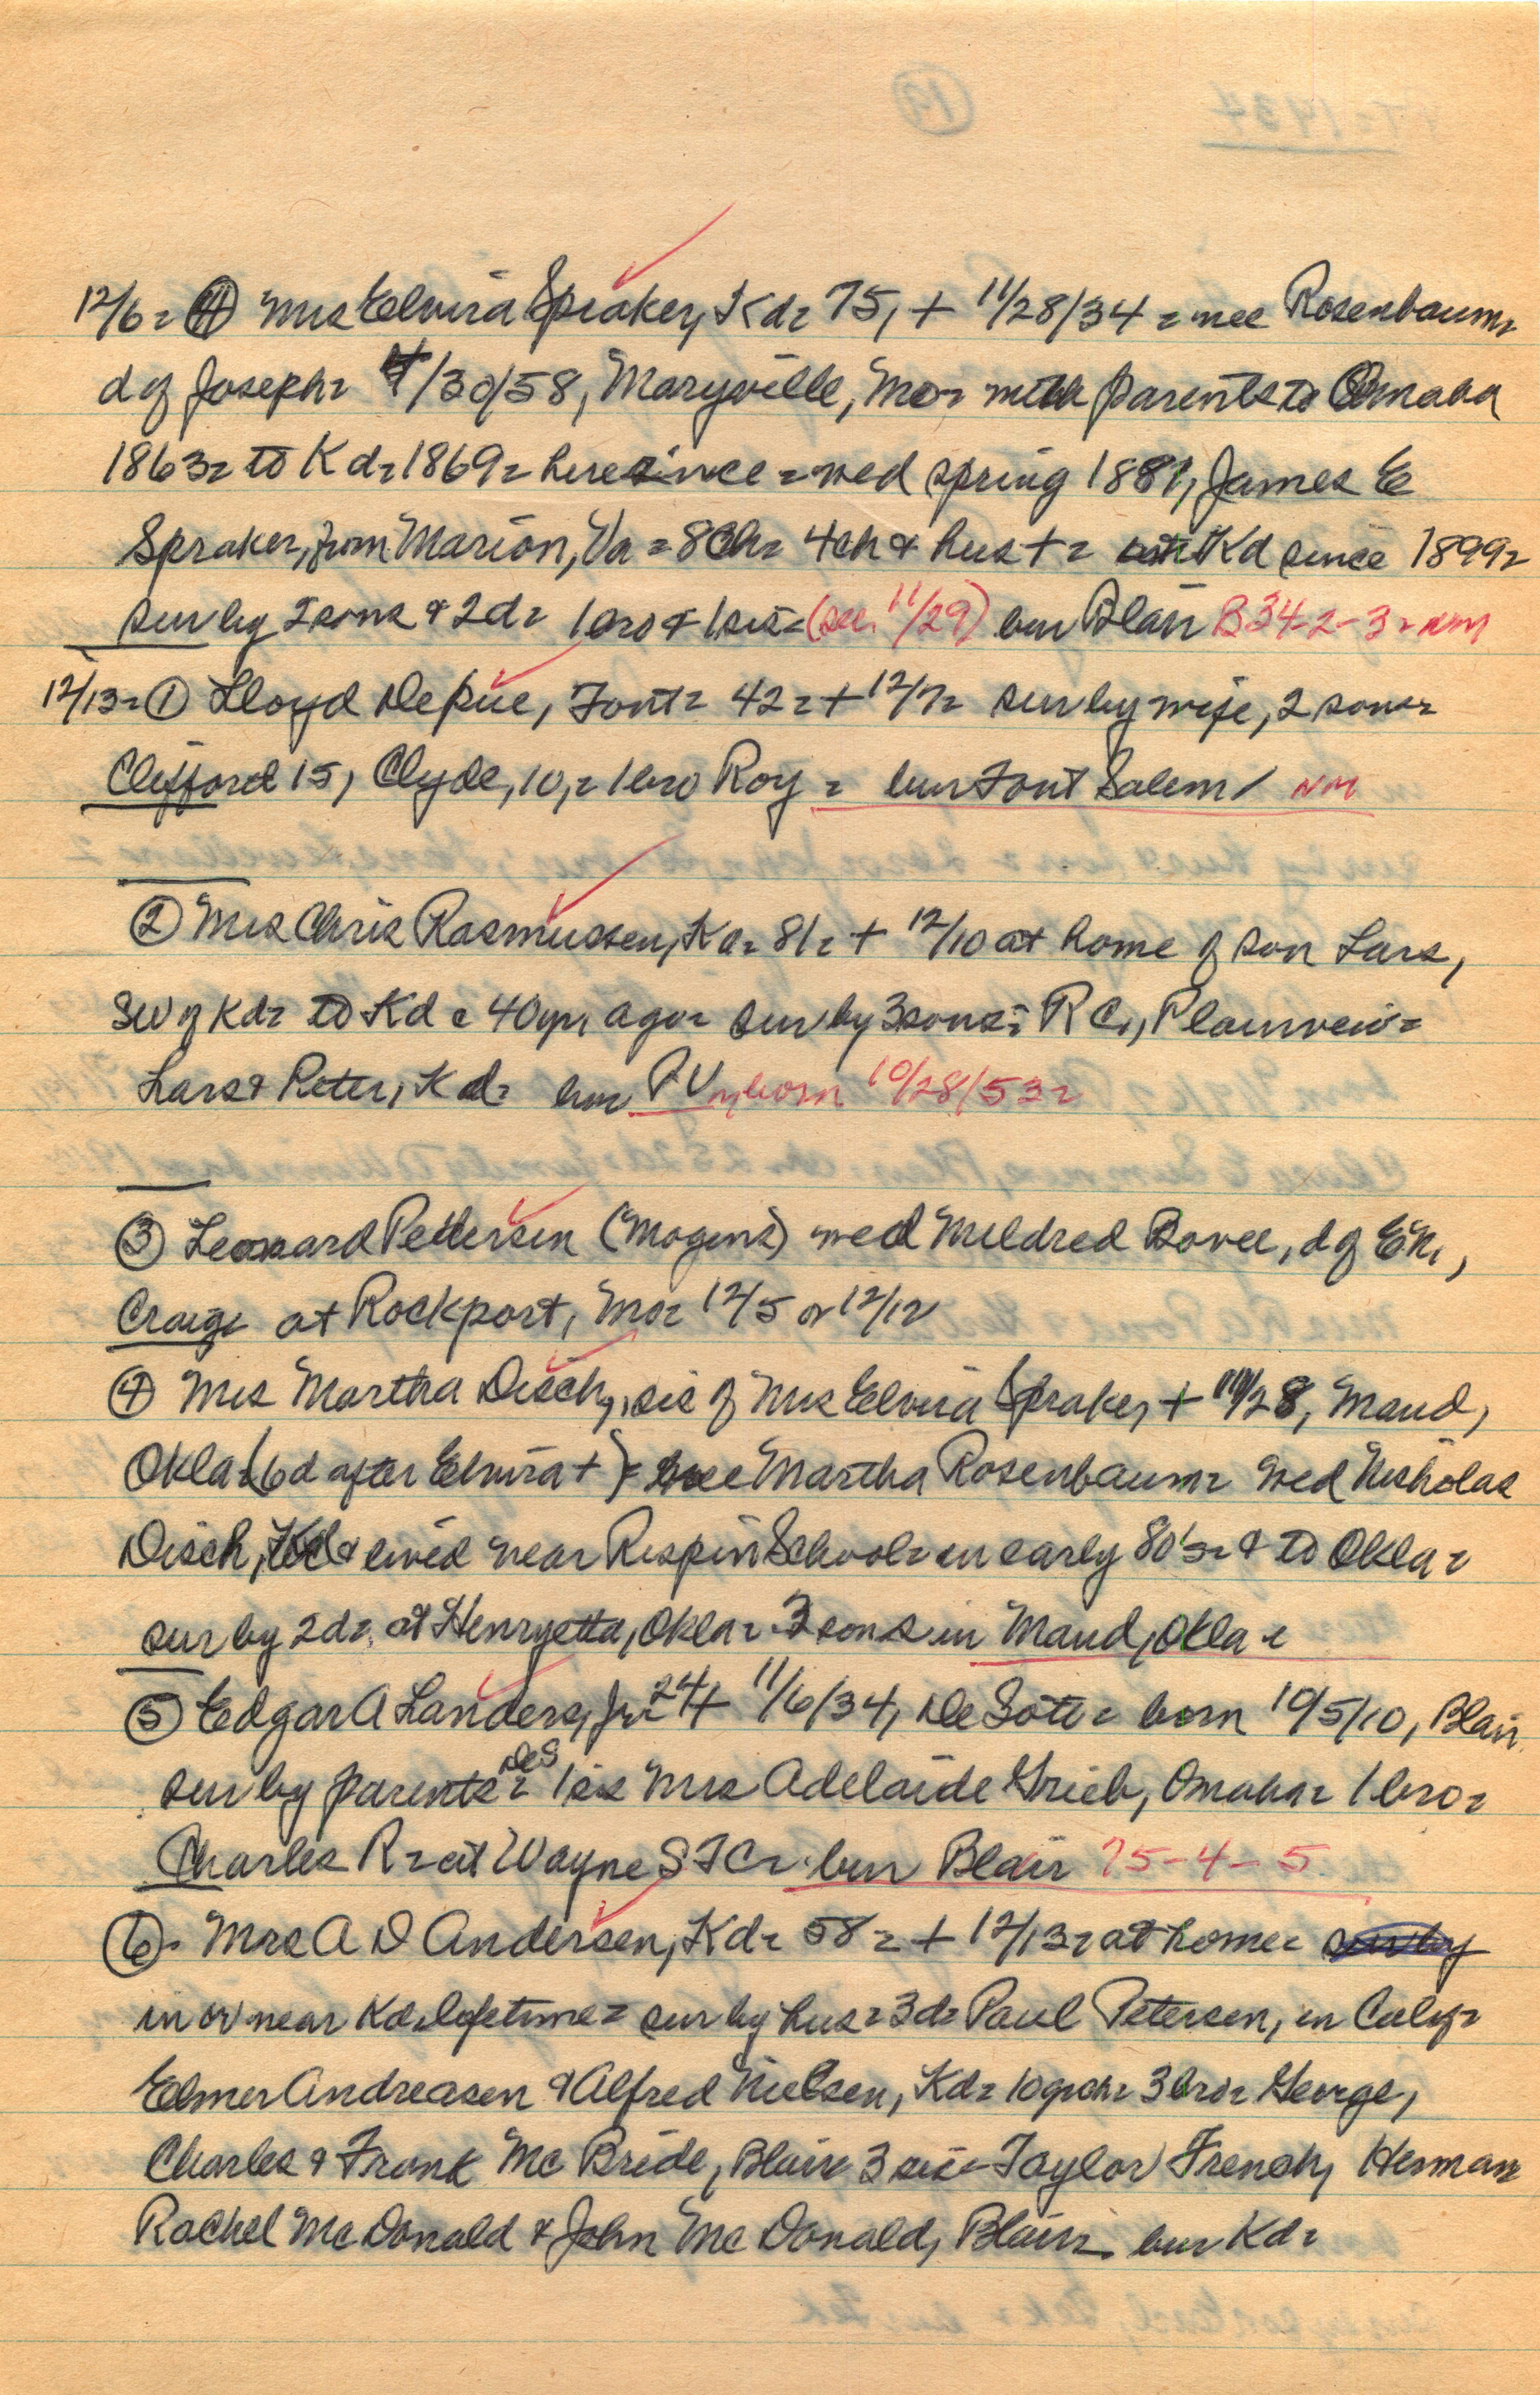 12/6= ④ Mrs Elvira Spraker, Kd= 75, + 11/28/34 = nee Rosenbaum=
d of Joseph= /30/58, Maryville, Mo= with parents to Omaha
1863= to Kd= 1869= here since = wed spring 1881, James E
Spraker, from Marion, Va = 8 Ch= 4 ch & hus + = Kd since 1899=
sur by 2 sons & 2 d= 1 bro & 1 sis= (see 11/29) bur Blair B34-2-3= NM
12/13= ① Lloyd DePue, Font= 42= + 12/7= sur by wife, 2 sons=
Clifford 15, Clyde, 10, = 1 bro Roy = bur Font Salem / NM
② Mrs Chris Rasmussen, Kd= 81= + 12/10 at home of son Lars,
SW of Kd= to Kd = 40 yr, ago= sur by 3 sons= R C., Plainveiw=
Lars & Peter, Kd= bur PV, born 10/28/53=
③ Leonard Pettersen (Mogens) wed Mildred Bovee, d of E.N.,
Craig= at Rockport, Mo= 12/5 or 12/12
④ Mrs Martha Disch, sis of Mrs Elvira Spraker, + 11/28, Maud,
Okla (6d after Elvira +) = nee Martha Rosenbaum= wed Nicholas
Disch, Kd & lived near Rispin School= in early 80's= & to Okla =
sur by 2 d= at Henryetta, Okla= 3 sons in Maud, Okla =
⑤ Edgar A Landers, Jr= 24 + 11/6/34, De Soto = born 10/5/10, Blair
sur by parents= DeS 1 sis Mrs Adelaide Grieb, Omaha= 1 bro=
Charles R= at Wayne S T C= bur Blair 75-4-5
⑥. Mrs A D Andersen, Kd= 58 = + 12/13= at home= sur by
in or near Kd= lifetime= sur by hus= 3 d= Paul Petersen, in Calif=
Elmer Andreasen & Alfred Nielsen, Kd= 10 grch= 3 bro= George,
Charles & Frank Mc Bride, Blair 3 sis= Taylor French, Herman
Rachel McDonald & John Mc Donald, Blair= bur Kd=